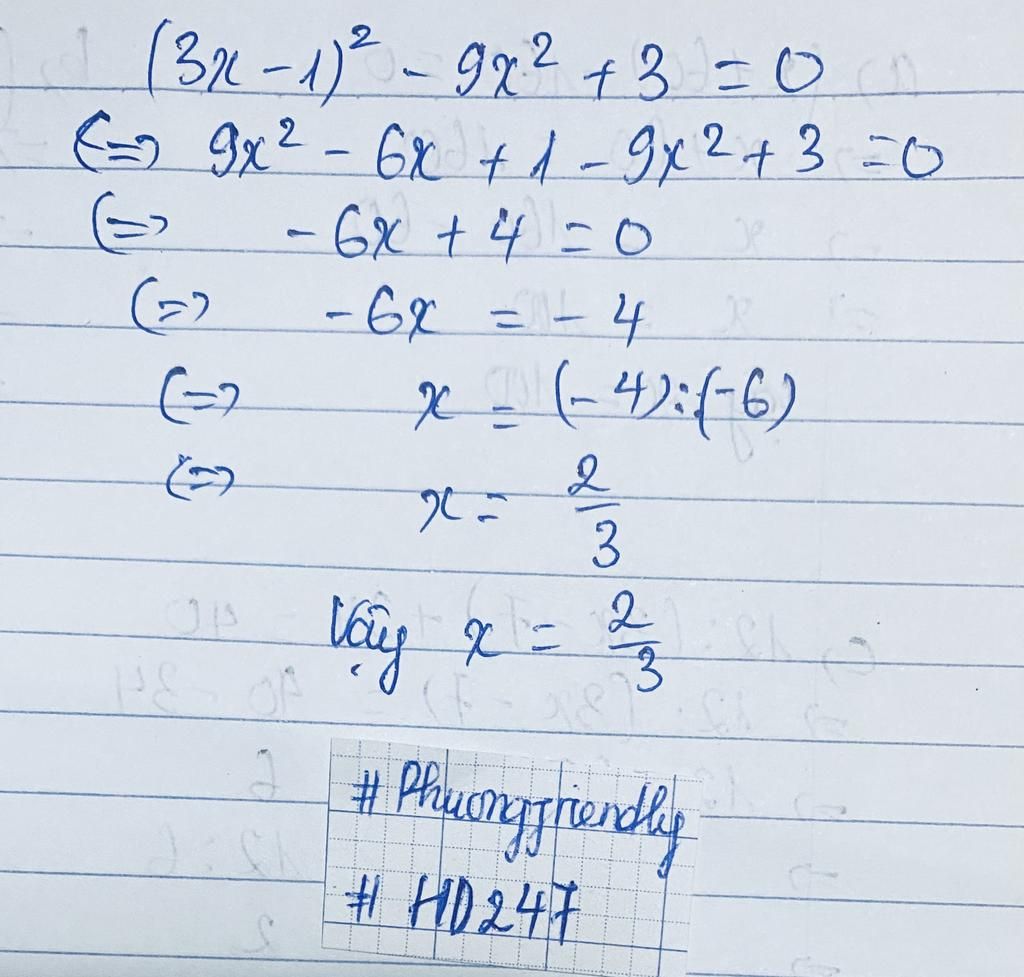 (3x - 1)² - 9x² + 3 = 0
(=> 9x² - 6x + 1 - 9x² + 3 = 0
(=> - 6x + 4 = 0
(=> - 6x = - 4
(=> x = (- 4) : (- 6)
(=> x = 2/3
Vậy x = 2/3
# Phuongfriendly
# HD247